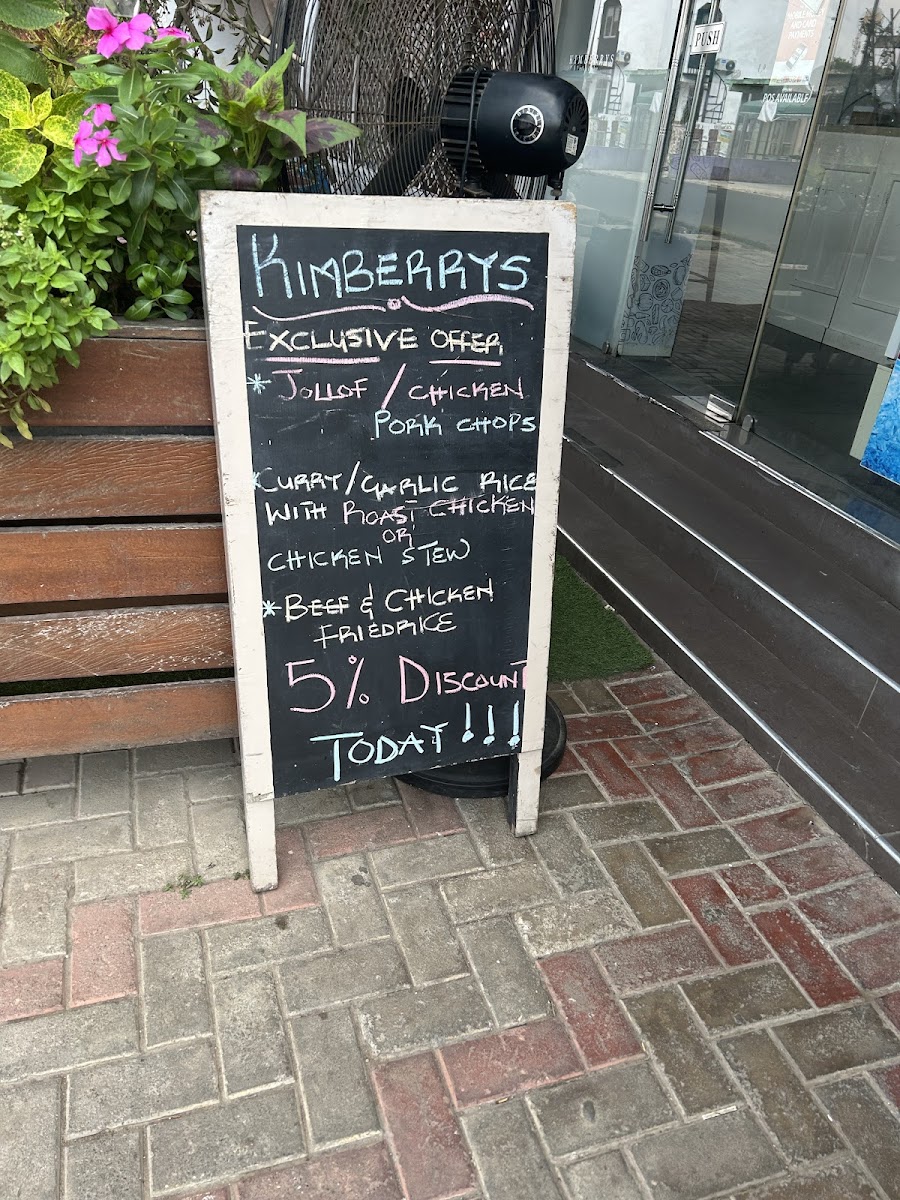 KIMBERRYS
EXCLUSIVE OFFER
* JOLLOF / CHICKEN
PORK CHOPS
*CURRY/GARLIC RICE
WITH ROAST CHICKEN
OR
CHICKEN STEW
* BEEF & CHICKEN
FRIEDRICE
5% DISCOUNT
TODAY !!!
KIMBERRYS
PUSH
MOBILE MONEY
AND CARD
PAYMENTS
POS AVAILABLE